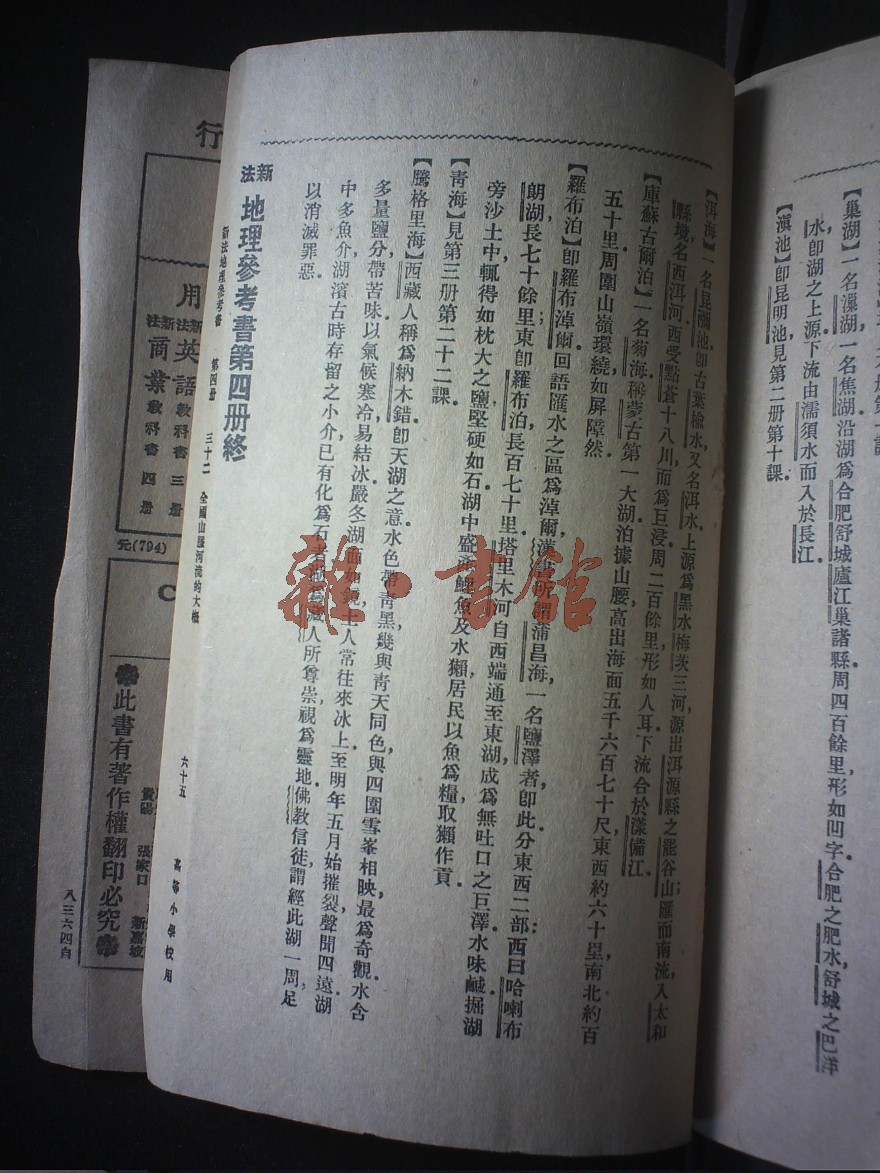 【巢湖】一名漅湖，一名焦湖沿湖爲合肥舒城廬江巢諸縣周四百餘里形如凹字合肥之肥水舒城之巴洋
水卽湖之上源下流由濡須水而入於長江．
【滇池】卽昆明池見第二册第十課．
【洱海】一名昆彌池卽古葉楡水又名洱水上源爲黑水梅茨三河源出洱源縣之罷谷山匯而南流入太和
縣境名西洱河西受點蒼十八川，而爲巨浸周二百餘里形如人耳下流合於漾備江．
【庫蘇古爾泊】一名菊海，稱蒙古第一大湖泊據山腰高出海面五千六百七十尺東西約六十里南北約百
五十里周圍山嶺環繞如屏障然．
【羅布泊】卽羅布淖爾回語匯水之區爲淖爾漢書所謂蒲昌海，一名鹽澤者卽此分東西二部：西曰哈喇布
朗湖長七十餘里；東卽羅布泊長百七十里．塔里木河自西端通至東湖，成爲無吐口之巨澤水味鹹掘湖
旁沙土中，輒得如枕大之鹽堅硬如石湖中盛產鯉魚及水獺居民以魚爲糧取獺作貢．
【靑海】見第三册第二十二課．
【騰格里海】西藏人稱爲納木錯，卽天湖之意水色帶靑黑幾與靑天同色與四圍雪峯相映，最爲奇觀水含
多量鹽分帶苦味以氣候寒冷，易結冰嚴冬湖面如鏡土人常往來冰上至明年五月始摧裂，聲聞四遠湖
中多魚介湖濱古時存留之小介，已有化爲石者湖爲藏人所尊崇視爲靈地佛敎信徒謂經此湖一周足
以消滅罪惡．
新法 地理參考書第四册終
新法地理參考書 第四册 三十二 全國山脈河流的大概 六十五 高等小學校用
行
用
新法英語敎科書三册
新法商業敎科書四册
元(794)
C
此書有著作權翻印必究
張家口
新嘉坡
八三六四自
雜·書館